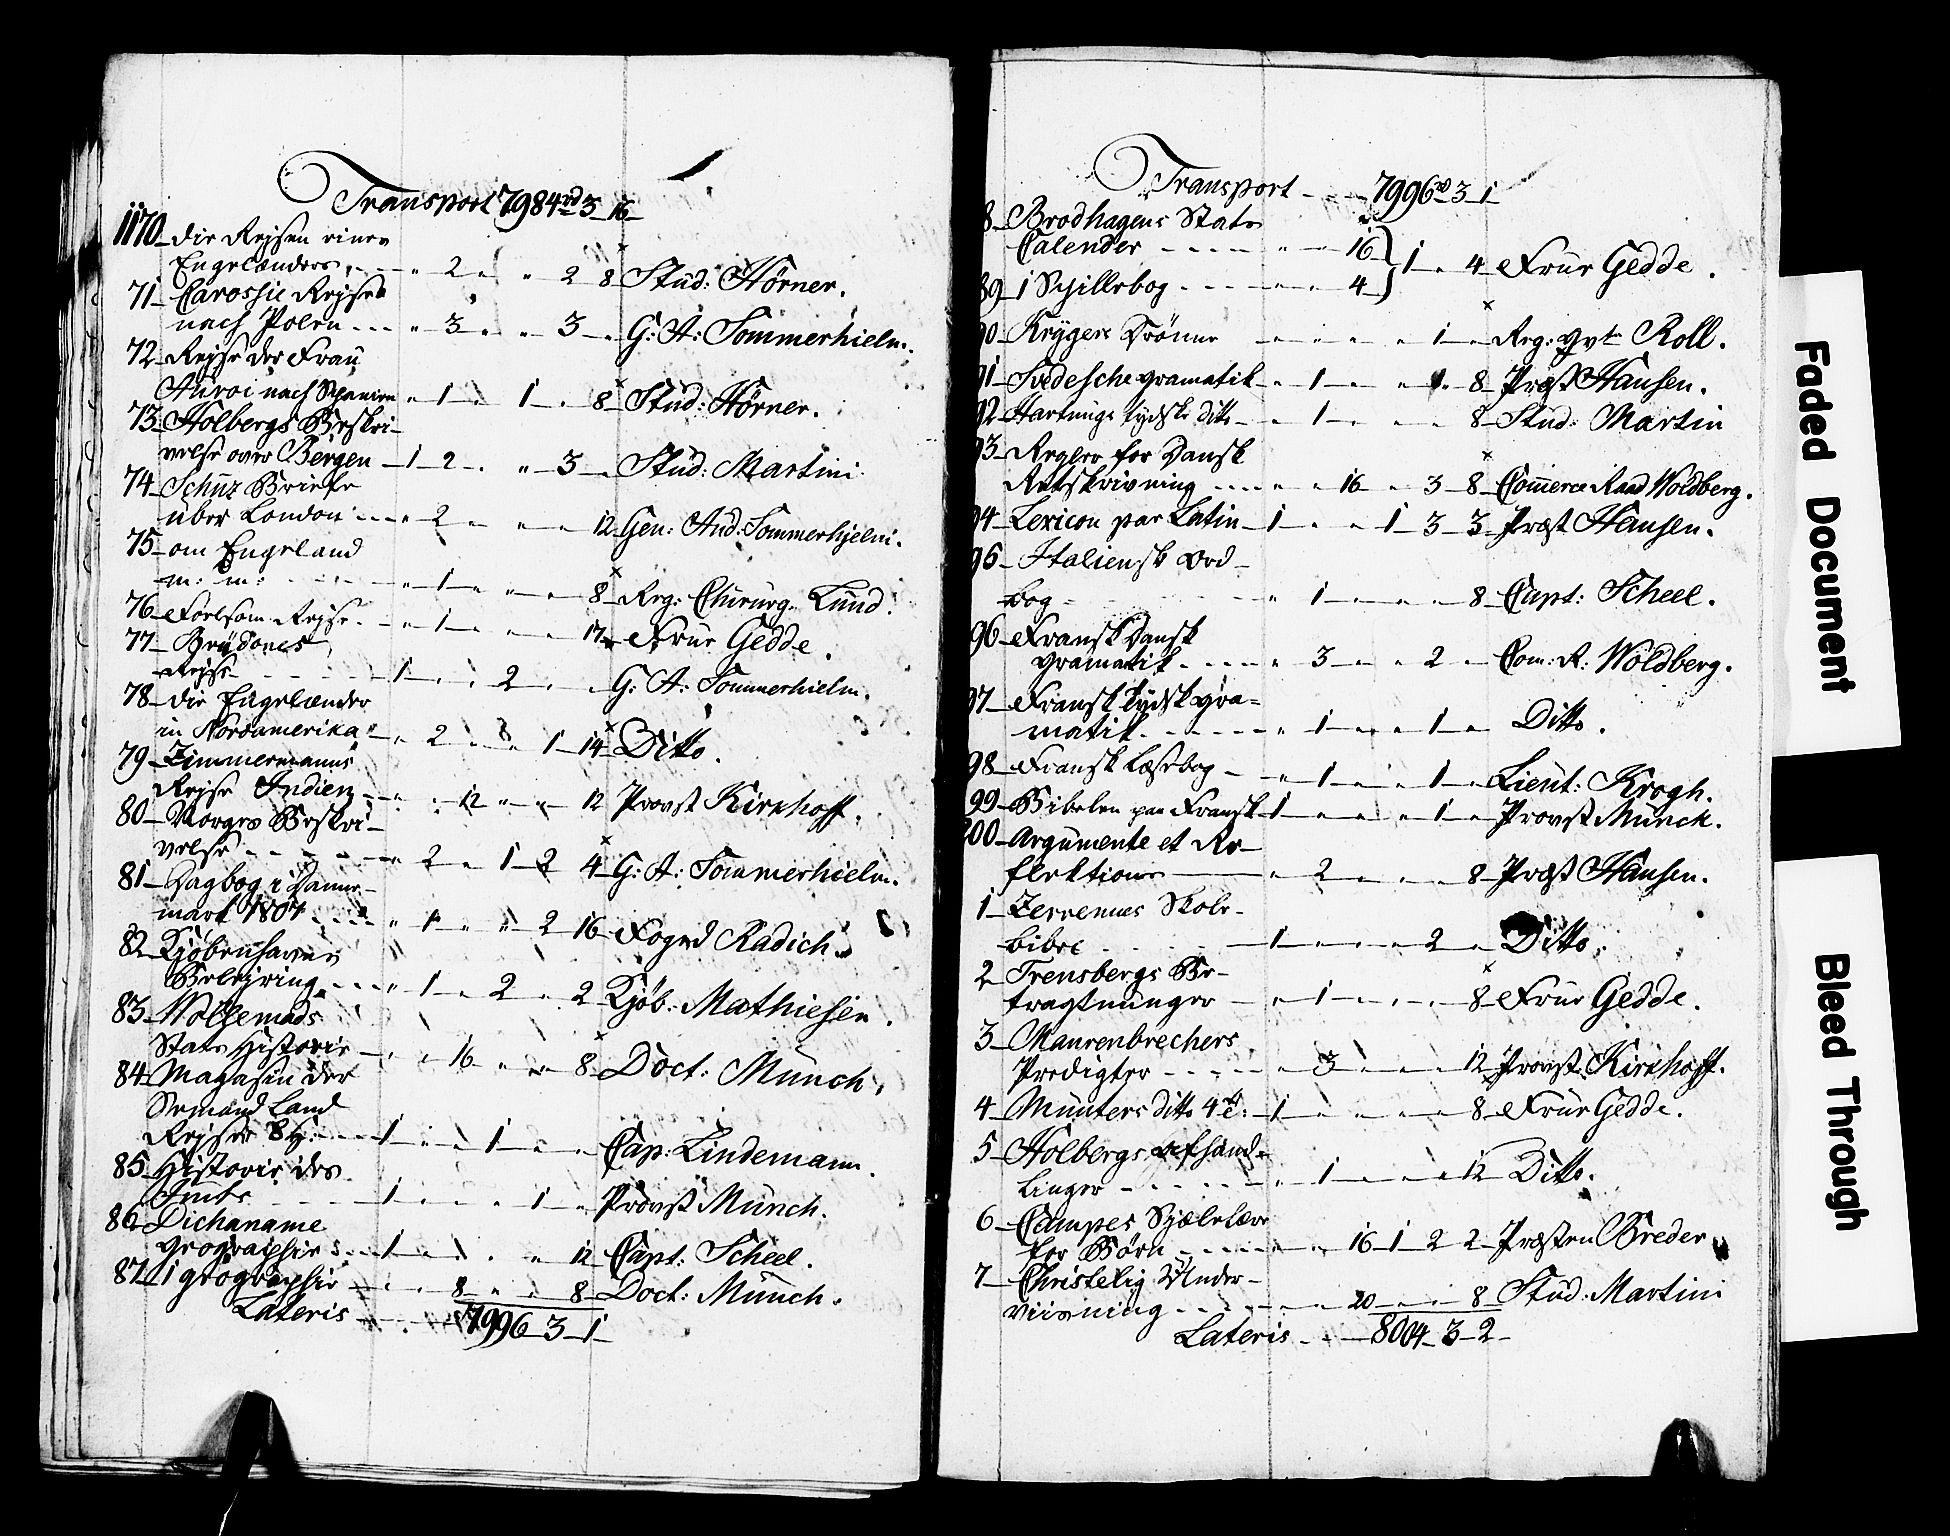 Transport 7984 rd 3 16
1170 die Rejsen eines
Engelænders, - - " 2 " " 2 8 Stud: Hörner.
71 Carossie Rejse
nach Polen - - - " 3 " " 3 " G: A: Sommerhielm.
72 Rejse der Frau
Auroi nach Spanien " 1 " 1 " 8 Stud: Hörner.
73 Holbergs Beskri-
velse over Bergen - 1 2 - " 3 " Stud: Martini
74 Schüz Briefe
über London - - - " 2 - " " 12 Gen: Aud: Sommerhjelm.
75 om Engeland
m: m: - - - " 1 - " " 8 Reg: Chirurg. Lund.
76 Rejse - - " 1 - " " 17 Frue Gedde.
77 Brüdones
Rejse - - - 1 - " 2 " " G: A: Sommerhielm.
78 die Engelænder
in Nordamerika " - " 2 " " 1 14 Ditto.
79 Zimmermanns
Rejse Indien - - " " 12 " " 12 Provst Kirkhoff.
80 Norges Beskri-
velse - - - " 2 " 1 2 4 G: A: Sommerhielm.
81 Dagbog i Danne-
mark 1807 - - - " 1 " " 2 16 Foged Radich.
82 Kjøbenhavns
Belejring - - - " 1 " 2 " 2 Kjöb: Mathiesen.
83 Wollemads
Stats Historie - " " 16 " " 8 Doct: Münch,
84 Magasin der
Land
Rejser 8 H: - - - 1 " " 1 " " Cap: Lindemann.
85 Historie des
- - - 1 " " 1 " Provst Munch.
86 Dichaname
geographie - - 1 - " " 12 Capt: Scheel.
87 1 geographie - " " 8 " " 8 Doct: Münch.
Lateris - - - 7996 3 1
Transport - - - 7996 rd 3 1
8 Brodhagens Stats
Calender - - - - " " 16 } 1 " 4 Frue Gedde.
89 1 Spillebog - - - - " " 4 }
90 Krygers Drömme - " " " " 1 " Reg: Qvt Roll.
91 Svedesche gramatik - " 1 - " " 1 8 Præst Hansen.
92 Hartungs tydske ditto - " 1 - " " 8 Stud: Martin
93 Regler for Dansk
Retskrivning - - - " " 16 " 3 8 Commerce Raad Woldberg.
94 Lexicon par Latin - 1 " " 1 3 3 Præst Hansen.
95 Italiensk Ord-
bog - - - " 1 - " " 8 Capt: Scheel.
96 Fransk Dansk
gramatik - - - - " 3 - " 2 " Com: R: Woldberg.
97 Fransk tydsk gra=
matik - - - - " 1 - " 1 " Ditto.
98 Fransk Læsebog - " 1 - " 1 " Lieut: Krogh.
99 Bibelen paa Fransk 1 " " " 1 " Provst Munck.
200 Argumente et Re-
flektions - " 2 " " " 8 Præst Hansen.
1 Zerrenners Skole-
bibel - - - 1 " " " 2 " Ditto.
2 Trensbergs Be-
tragtninger - " 1 - " " 8 Frue Gedde.
3 Maurenbrechers
Predigter - - - - " 3 " " " 12 Provst Kirkhoff.
4 Munters ditto 4 - 1 " " " " 8 Frue Gedde.
5 Holbergs afhand-
linger - - - - " 1 " " " 12 Ditto.
6 Campes Sjælelære
for Børn - - - " " 16 1 2 2 Præsten Breder
7 Christelig Under-
viisning - - - - " " 20 " " 8 Stud: Martini
Lateris - - - 8004 3 2
Faded Document
Bleed Through